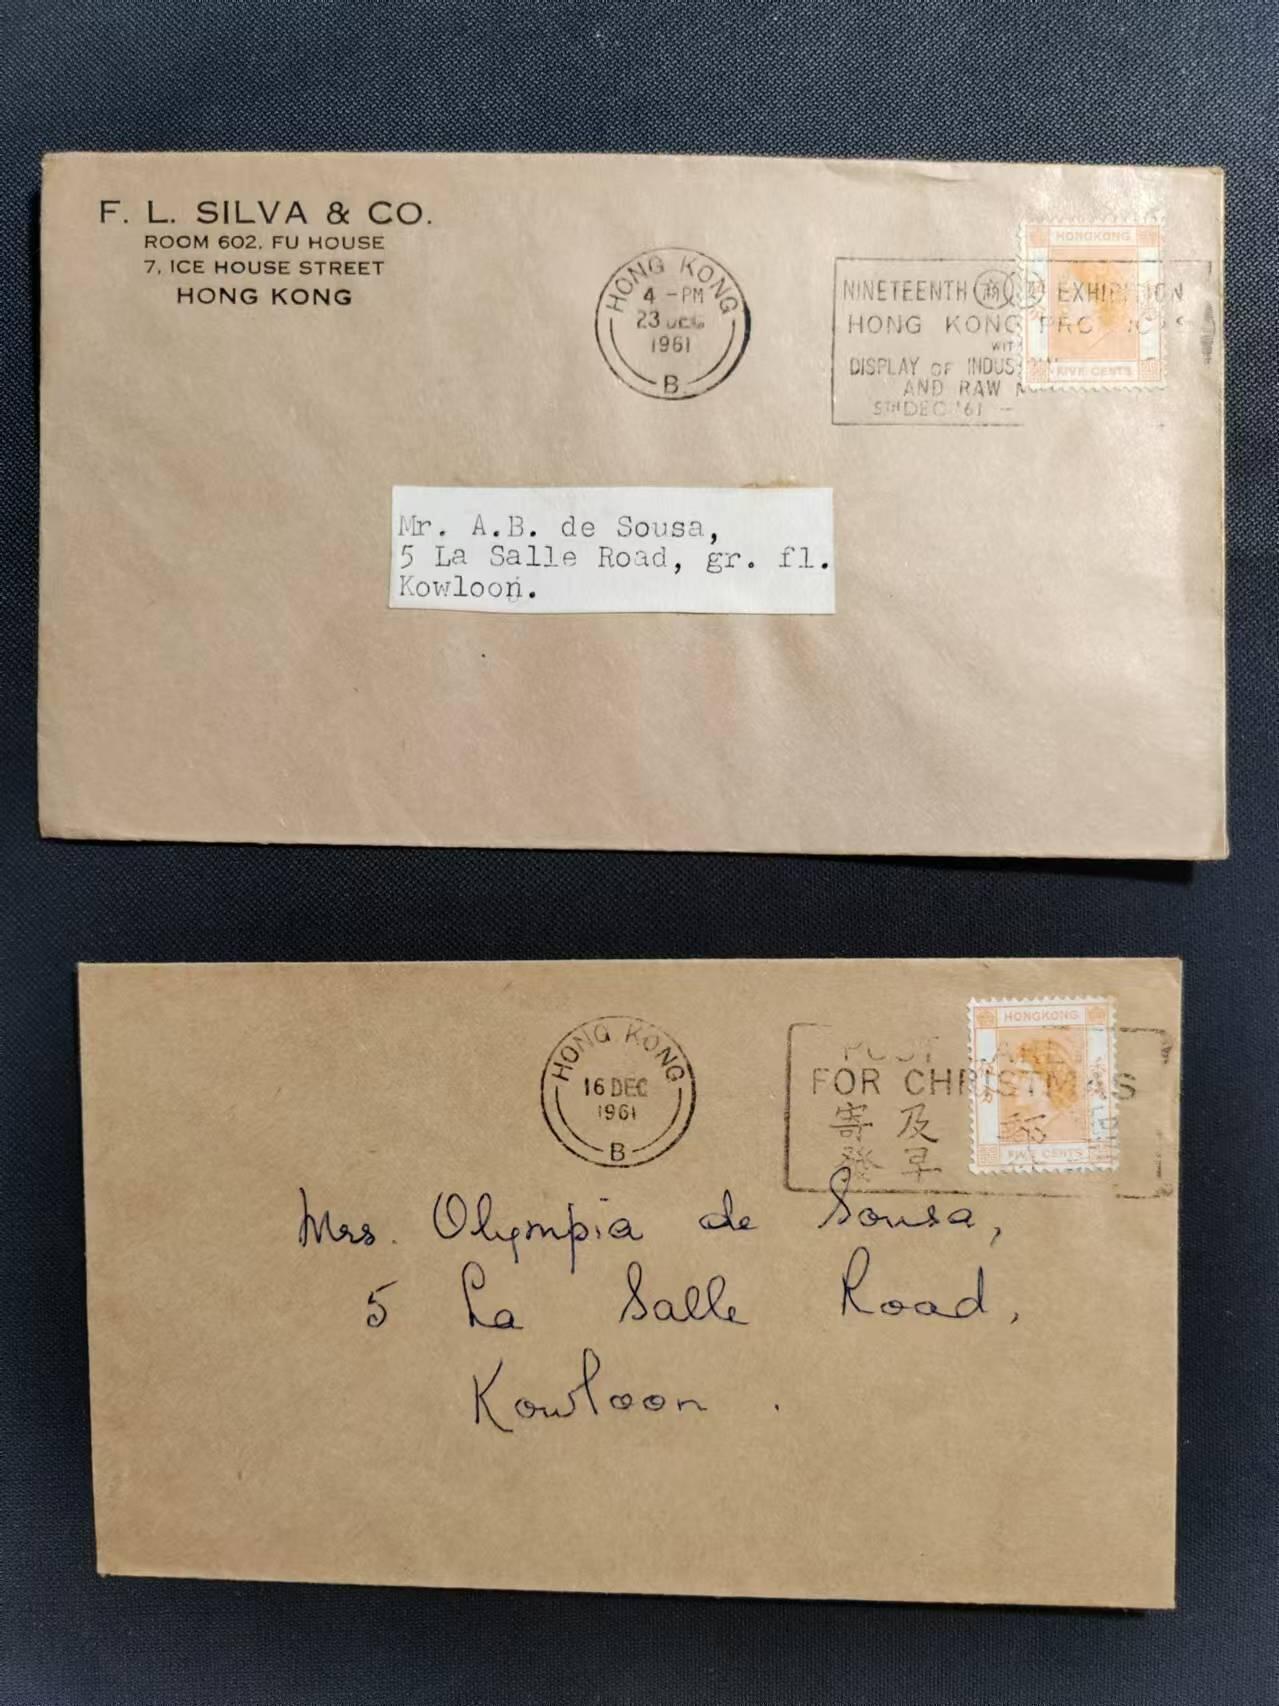 F. L. SILVA & CO.
ROOM 602, FU HOUSE
7, ICE HOUSE STREET
HONG KONG
HONG KONG
4 - PM
23 DEC
1961
B
HONGKONG
FIVE CENTS
NINETEENTH EXHIBITION
HONG KONG
WITH
DISPLAY OF
AND RAW
5TH DEC '61 -
Mr. A.B. de Sousa,
5 La Salle Road, gr. fl.
Kowloon.
HONG KONG
16 DEC
1961
B
HONGKONG
FIVE CENTS
POST EARLY
FOR CHRISTMAS
寄 及 郵
發 早
Mrs. Olympia de Sousa,
5 La Salle Road,
Kowloon.